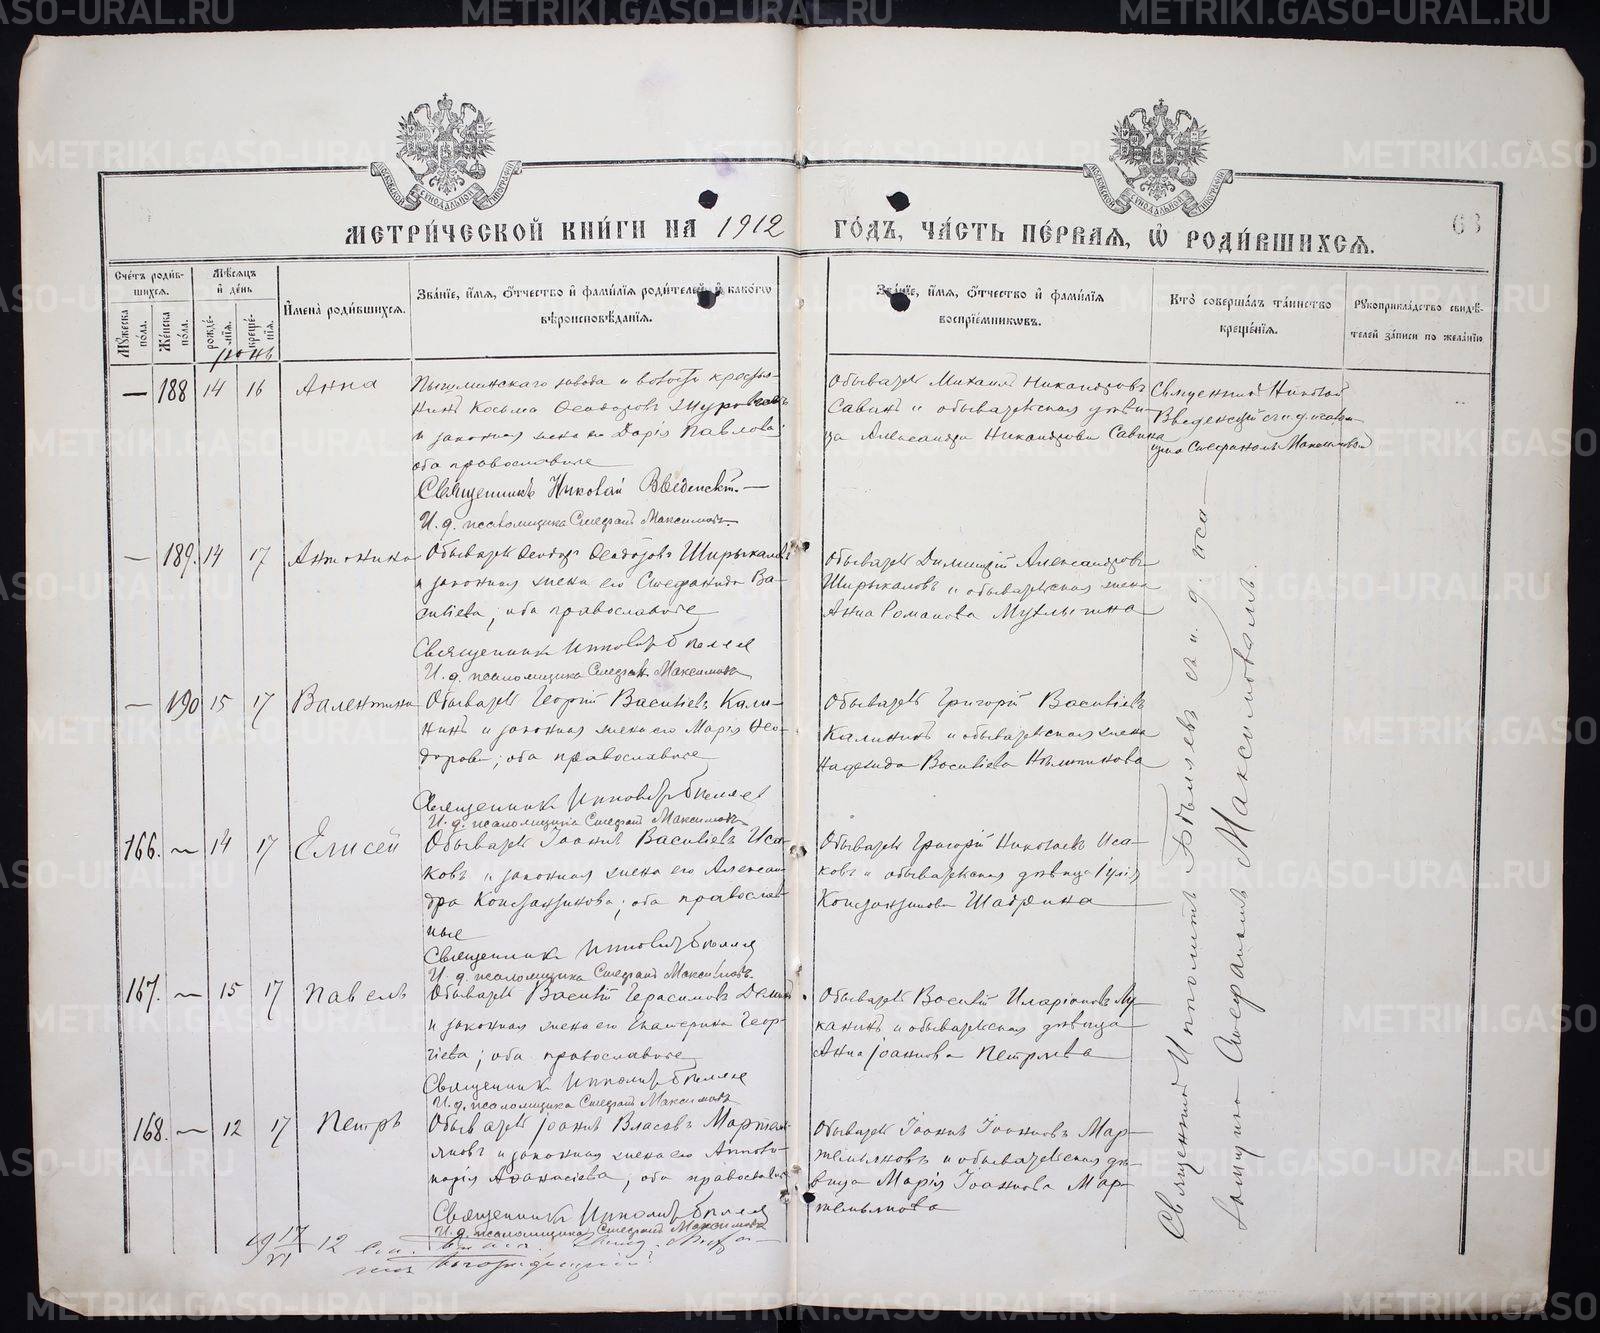 METRIKI.GASO-URAL.RU
МОСКОВСКОЙ СѴНОДАЛЬНОЙ ТИПОГРАФІИ
МЕТРИ́ЧЕСКОЙ КНИ́ГИ НА 1912 ГО́ДЪ, ЧА́СТЬ ПЕ́РВАЯ, Ѡ РОДИ́ВШИХСЯ.
63
Сче́тъ роди́вшихся.
Му́жеска по́ла.
Же́нска по́ла.
Мѣ́сяцъ и҆ де́нь
рожде́нїя.
креще́нїя.
И҆мена̀ роди́вшихся.
Зва́нїе, и҆́мя, о҆́тчество и҆ фами́лїя роди́телей, и҆ како́гѡ вѣроисповѣ́данїя.
Зва́нїе, и҆́мя, о҆́тчество и҆ фами́лїя воспрїе́мникѡвъ.
Кто̀ соверша́лъ та́инство креще́нїя.
Рукоприкла́дство свидѣ́телей за́писи по жела́нїю
Іюнь
— 188 14 16 Анна
Пышминскаго завода и волости крестья-
нинъ Косьма Ѳеодоровъ
и законная жена его Дарія Павлова;
оба православные
Священникъ Николай Введенскій. —
И. д. псаломщика Стефанъ Максимовъ.
Обыватель Михаилъ Никандровъ
Савинъ и обывательская дѣви-
ца Александра Никандрова Савина
Священникъ Николай
Введенскій съ и. д. псалом-
щика Стефаномъ Максимовымъ
— 189. 14 17 Антонина
Обыватель Ѳеодоръ Ѳеодоровъ Ширыкаловъ
и законная жена его Стефанида Ва-
сильева; оба православные
Священникъ Ипполитъ
И. д. псаломщика Стефанъ Максимовъ
Обыватель Димитрій Александровъ
Ширыкаловъ и обывательская жена
Анна Романова Мухлынина
— 190 15 17 Валентина
Обыватель Георгій Васильевъ Кали-
нинъ и законная жена его Марія Ѳео-
дорова; оба православные
Священникъ Ипполитъ
И. д. псаломщика Стефанъ Максимовъ
Обыватель Григорій Васильевъ
Калининъ и обывательская жена
Надежда Васильева
166. — 14 17 Елисей
Обыватель Іоаннъ Васильевъ Иса-
ковъ и законная жена его Алексан-
дра Константинова; оба православ-
ные
Священникъ Ипполитъ
И. д. псаломщика Стефанъ Максимовъ.
Обыватель Григорій Николаевъ Иса-
ковъ и обывательская дѣвица Іулія
Константинова Шадрина
167. — 15 17 Павелъ
Обыватель Василій Герасимовъ
и законная жена его Екатерина Геор-
гіева; оба православные
Священникъ Ипполитъ
И. д. псаломщика Стефанъ Максимовъ
Обыватель Василій Иларіоновъ Лу-
канинъ и обывательская дѣвица
Анна Іоаннова Петрлева
168. — 12 17 Петръ
Обыватель Іоаннъ Власовъ Мартемь-
яновъ и законная жена его Аполли-
нарія Аѳанасіева; оба православные
Священникъ Ипполитъ
И. д. псаломщика Стефанъ Максимовъ
Обыватель Іоаннъ Іоанновъ Мар-
темьяновъ и обывательская дѣ-
вица Марія Іоаннова Мар-
темьянова
Священникъ Ипполитъ съ и. д. пса-
ломщика Стефаномъ Максимовымъ.
19 17/VI 12